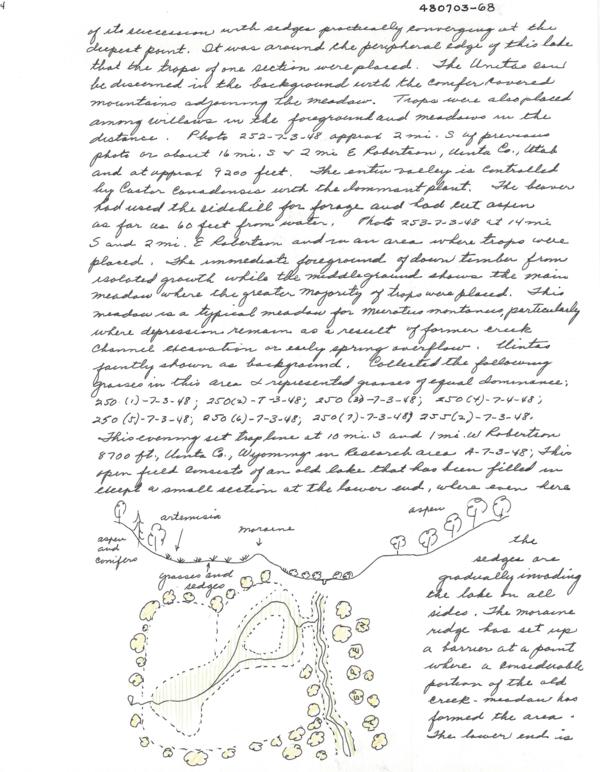 4
480703-68
of its succession with sedges practically converging at the
deepest point. It was around the peripheral edge of this lake
that the traps of one section were placed. The Unitas can
be discerned in the background with the conifer covered
mountains adjoining the meadow. Traps were also placed
among willows in the foreground and meadows in the
distance. Photo 252-7-3-48 approx 2 mi. S of previous
photo or about 16 mi. S & 2 mi E Robertson, Uinta Co., Utah
and at approx 9200 feet. The entire valley is controlled
by Castor Canadensis with the dominant plant. The beaver
had used the sidehill for forage and had cut aspen
as far as 60 feet from water. Photo 253-7-3-48 at 14 mi
S and 2 mi. E Robertson and in an area where traps were
placed. The immediate foreground of down timber from
isolated growth while the middleground shows the main
meadow where the greater majority of traps were placed. This
meadow is a typical meadow for Microtus montanus, particularly
where depression remain as a result of former creek
channel excavation or early spring overflow. Uintas
faintly shown as background. Collected the following
grasses in this area & represented grasses of equal dominance:
250(1)-7-3-48; 250(2)-7-3-48; 250(3)-7-3-48; 250(4)-7-4-48;
250(5)-7-3-48; 250(6)-7-3-48; 250(7)-7-3-48; 255(2)-7-3-48.
This evening set trapline at 10 mi. S and 1 mi. W Robertson
8700 ft, Uinta Co., Wyoming in Research area A-7-3-48; This
open field consists of an old lake that has been filled in
except a small section at the lower end, where even here
artemisia
moraine
aspen
aspen
and
conifers
grasses and
sedges
the
sedges are
gradually invading
the lake on all
sides. The moraine
ridge has set up
a barrier at a point
where a considerable
portion of the old
creek-meadow has
formed the area.
The lower end is